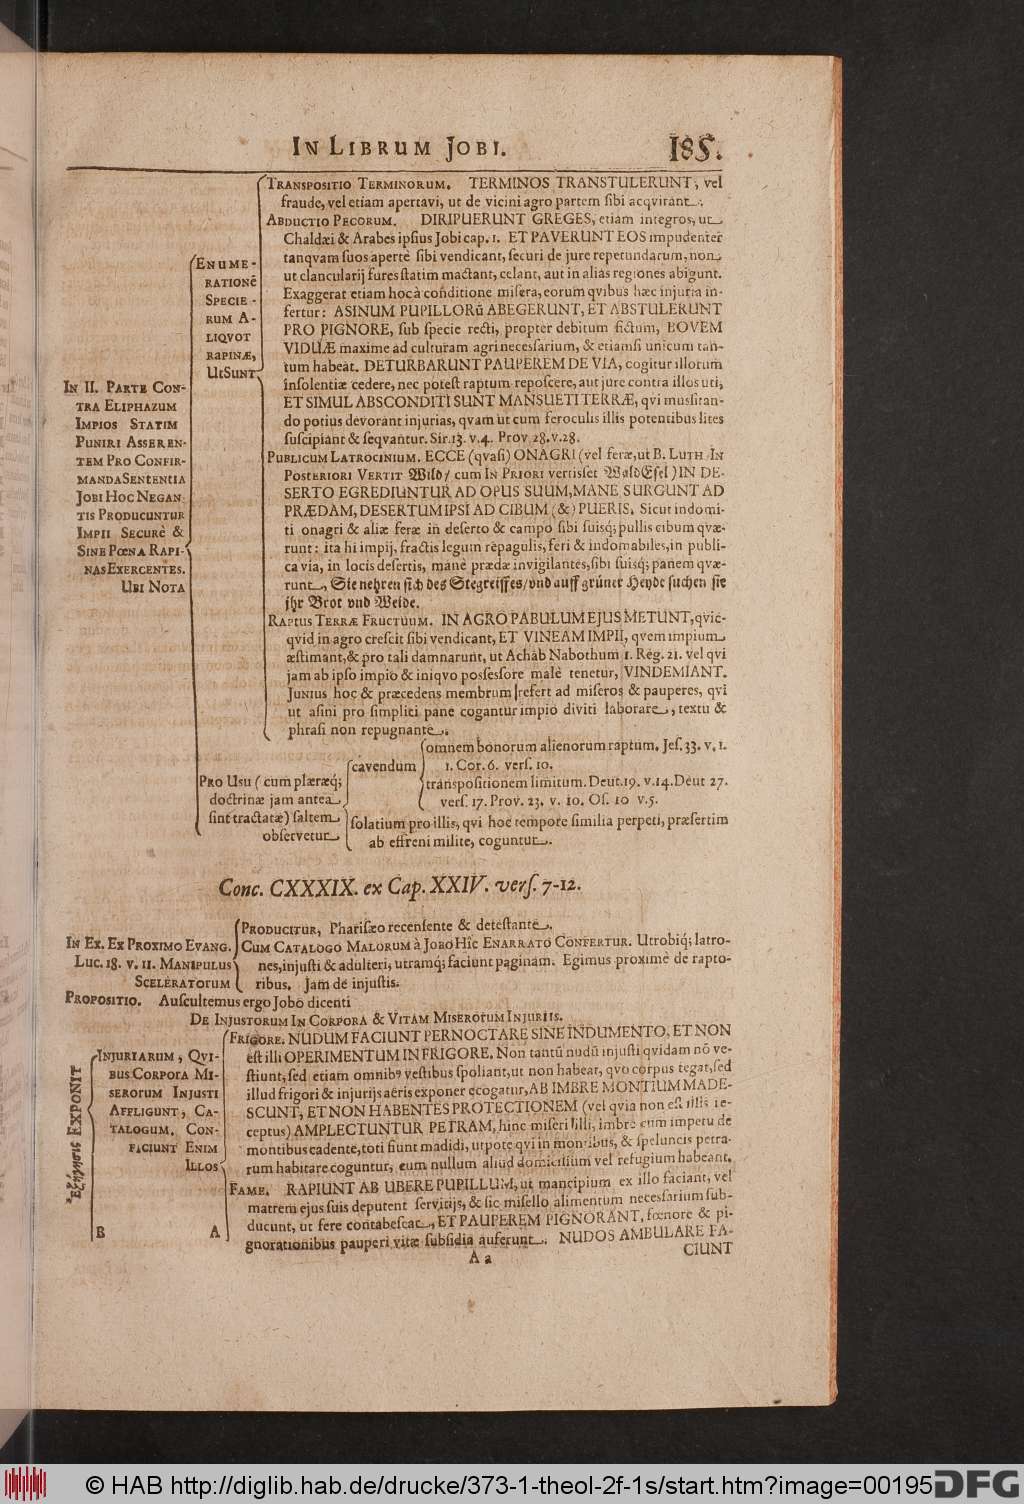 IN LIBRUM JOBI. 185.
IN II. PARTE CON-
TRA ELIPHAZUM
IMPIOS STATIM
PUNIRI ASSEREN-
TEM PRO CONFIR-
MANDA SENTENTIA
JOBI HOC NEGAN
TIS PRODUCUNTUR
IMPII SECURÈ &
SINE POENA RAPI-
NAS EXERCENTES.
UBI NOTA
ENUME-
RATIONẽ
SPECIE-
RUM A-
LIQVOT
RAPINÆ,
UT SUNT
TRANSPOSITIO TERMINORUM. TERMINOS TRANSTULERUNT, vel
fraude, vel etiam apertavi, ut de vicini agro partem sibi acqvirant.
ABDUCTIO PECORUM. DIRIPUERUNT GREGES, etiam integros, ut
Chaldæi & Arabes ipsius Jobi cap. 1. ET PAVERUNT EOS impudenter
tanqvam suos apertè sibi vendicant, securi de jure repetundarum, non
ut clancularij fures statim mactant, celant, aut in alias regiones abigunt.
Exaggerat etiam hoc à conditione misera, eorum qvibus hæc injuria in-
fertur: ASINUM PUPILLORũ ABEGERUNT, ET ABSTULERUNT
PRO PIGNORE, sub specie recti, propter debitum fictum, BOVEM
VIDUÆ maxime ad culturam agri necessarium, & etiamsi unicum tan-
tum habeat. DETURBARUNT PAUPEREM DE VIA, cogitur illorum
insolentiæ cedere, nec potest raptum reposcere, aut jure contra illos uti,
ET SIMUL ABSCONDITI SUNT MANSUETI TERRÆ, qvi mussitan-
do potius devorant injurias, qvam ut cum feroculis illis potentibus lites
suscipiant & seqvantur. Sir. 13. v. 4. Prov 28. v. 28.
PUBLICUM LATROCINIUM. ECCE (qvasi) ONAGRI (vel feræ, ut B. LUTH IN
POSTERIORI VERTIT Wild/ cum IN PRIORI vertisset WaldEsel) IN DE-
SERTO EGREDIUNTUR AD OPUS SUUM, MANE SURGUNT AD
PRÆDAM, DESERTUM IPSI AD CIBUM (&) PUERIS. Sicut indomi-
ti onagri & aliæ feræ in deserto & campo sibi suisq; pullis cibum qvæ-
runt: ita hi impij, fractis legum repagulis, feri & indomabiles, in publi-
ca via, in locis desertis, manè prædæ invigilantes, sibi suisq; panem qvæ-
runt, Sie nehren sich des Stegreiffes/ vnd auff grüner Heyde suchen sie
jhr Brot vnd Weide.
RAPTUS TERRÆ FRUCTUUM. IN AGRO PABULUM EJUS METUNT, qvic-
qvid in agro crescit sibi vendicant, ET VINEAM IMPII, qvem impium
æstimant, & pro tali damnarunt, ut Achab Nabothum 1. Reg. 21. vel qvi
jam ab ipso impio & iniqvo possessore malè tenetur, VINDEMIANT.
JUNIUS hoc & præcedens membrum refert ad miseros & pauperes, qvi
ut asini pro simplici pane cogantur impio diviti laborare, textu &
phrasi non repugnante.
PRO USU (cum plæræq;
doctrinæ jam antea
sint tractatæ) saltem
observetur
cavendum
omnem bonorum alienorum raptum. Jes. 33. v. 1.
1. Cor. 6. vers. 10.
transpositionem limitum. Deut. 19. v. 14. Deut 27.
vers. 17. Prov. 23. v. 10. Os. 10 v. 5.
solatium pro illis, qvi hoc tempore similia perpeti, præsertim
ab effreni milite, coguntur.
Conc. CXXXIX. ex Cap. XXIV. vers. 7-12.
IN EX. EX PROXIMO EVANG.
Luc. 18. v. 11. MANIPULUS
SCELERATORUM
PRODUCITUR, Pharisæo recensente & detestante.
CUM CATALOGO MALORUM à JOBO HÎC ENARRATO CONFERTUR. Utrobiq; latro-
nes, injusti & adulteri, utramq; faciunt paginam. Egimus proximè de rapto-
ribus. Jam de injustis.
PROPOSITIO. Auscultemus ergo Jobo dicenti
DE INJUSTORUM IN CORPORA & VITAM MISERORUM INJURIIS.
Ἐξήγησις EXPONIT
INJURIARUM, QVI-
BUS CORPORA MI-
SERORUM INJUSTI
AFFLIGUNT, CA-
TALOGUM. CON-
FICIUNT ENIM
ILLOS
FRIGORE. NUDUM FACIUNT PERNOCTARE SINE INDUMENTO, ET NON
est illi OPERIMENTUM IN FRIGORE. Non tantũ nudũ injusti qvidam nõ ve-
stiunt, sed etiam omnibꝰ vestibus spoliant, ut non habeat, qvo corpus tegat, sed
illud frigori & injurijs aëris exponer ecogatur, AB IMBRE MONTIUM MADE-
SCUNT, ET NON HABENTES PROTECTIONEM (vel qvia non est illis re-
ceptus) AMPLECTUNTUR PETRAM, hinc miseri illi, imbre cum impetu de
montibus cadente, toti fiunt madidi, utpote qvi in montibus, & speluncis petra-
rum habitare coguntur, cum nullum aliud domicilium vel refugium habeant.
FAME. RAPIUNT AB UBERE PUPILLUM, ut mancipium ex illo faciant, vel
matrem ejus suis deputent servitijs, & sic misello alimentum necessarium sub-
ducunt, ut fere contabescat, ET PAUPEREM PIGNORANT, fœnore & pi-
gnorationibus pauperi vitæ subsidia auferunt. NUDOS AMBULARE FA-
B A
A a CIUNT
© HAB http://diglib.hab.de/drucke/373-1-theol-2f-1s/start.htm?image=00195 DFG